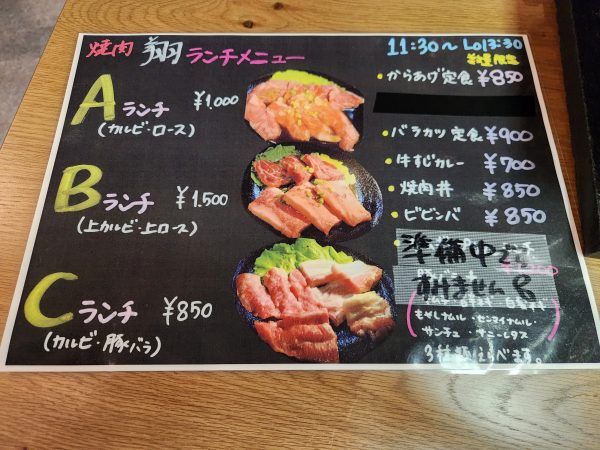 焼肉 翔 ランチメニュー
11:30～ Lo13:30
Aランチ ¥1,000
(カルビ・ロース)
Bランチ ¥1,500
(上カルビ・上ロース)
Cランチ ¥850
(カルビ・豚バラ)
からあげ定食 ¥850
バラカツ定食 ¥900
牛すじカレー ¥700
焼肉丼 ¥850
ビビンバ ¥850
準備中です
すみません
もやしナムル・センマイナムル・
サンチュ・サニーレタス
えらべます。